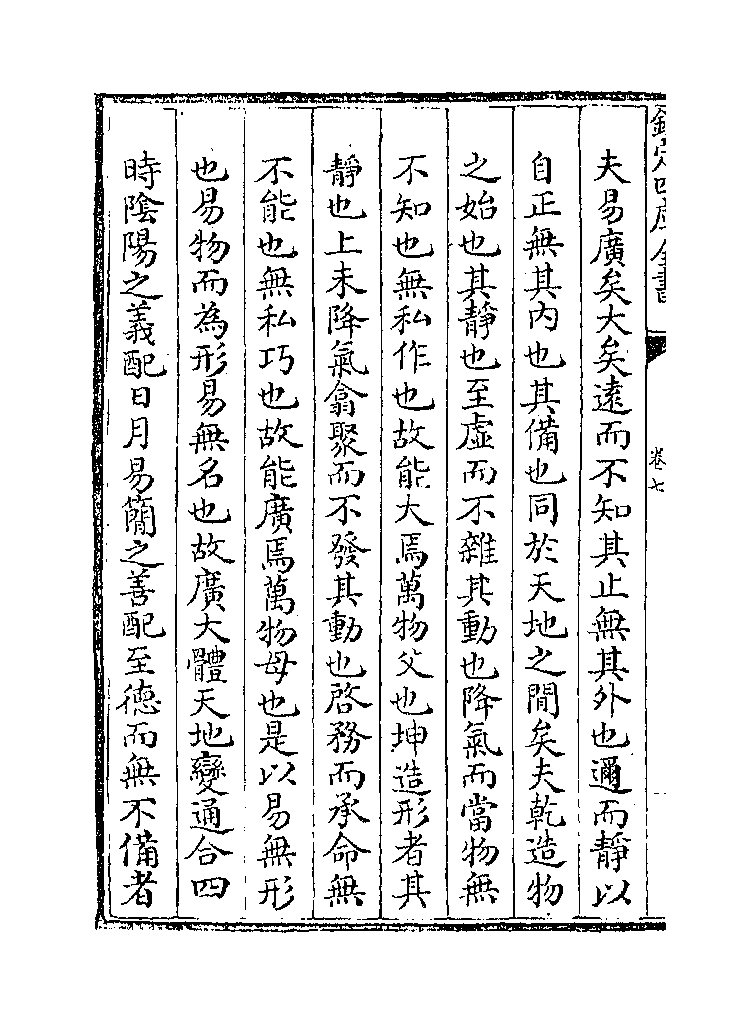 欽定四庫全書
卷七
夫易廣矣大矣遠而不知其止無其外也邇而靜以
自正無其內也其備也同於天地之間矣夫乾造物
之始也其靜也至虛而不雜其動也降氣而當物無
不知也無私作也故能大焉萬物父也坤造形者其
靜也上未降氣翕聚而不發其動也啓務而承命無
不能也無私巧也故能廣焉萬物母也是以易無形
也易物而為形易無名也故廣大體天地變通合四
時隂陽之義配日月易簡之善配至德而無不備者